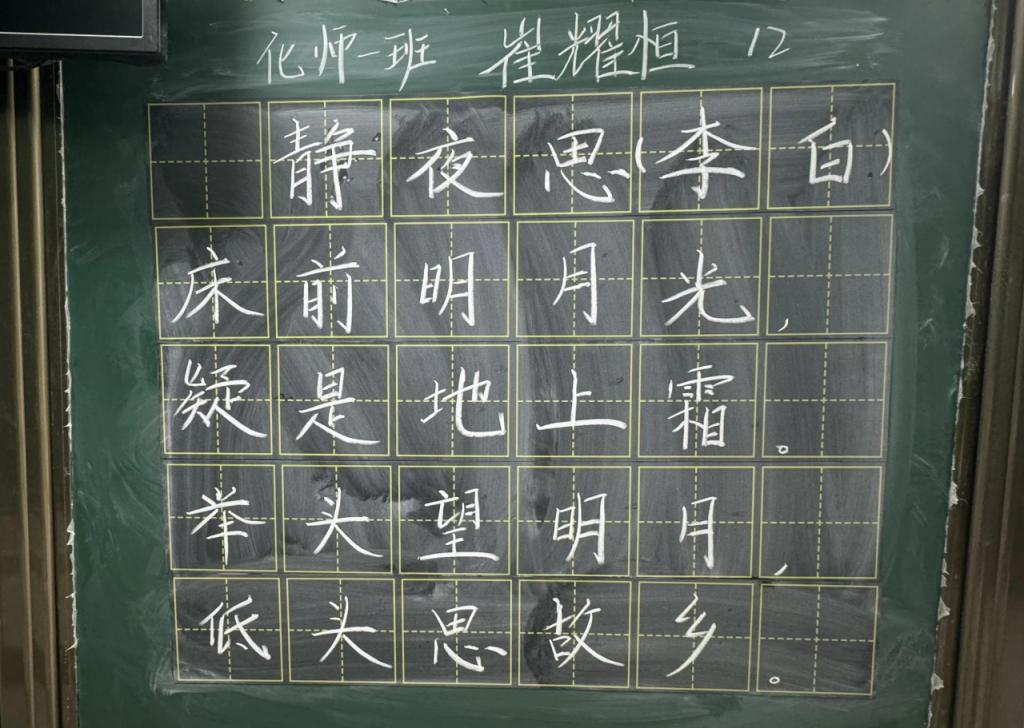 化师一班 崔耀恒 12
静夜思(李白)
床前明月光,
疑是地上霜。
举头望明月,
低头思故乡。